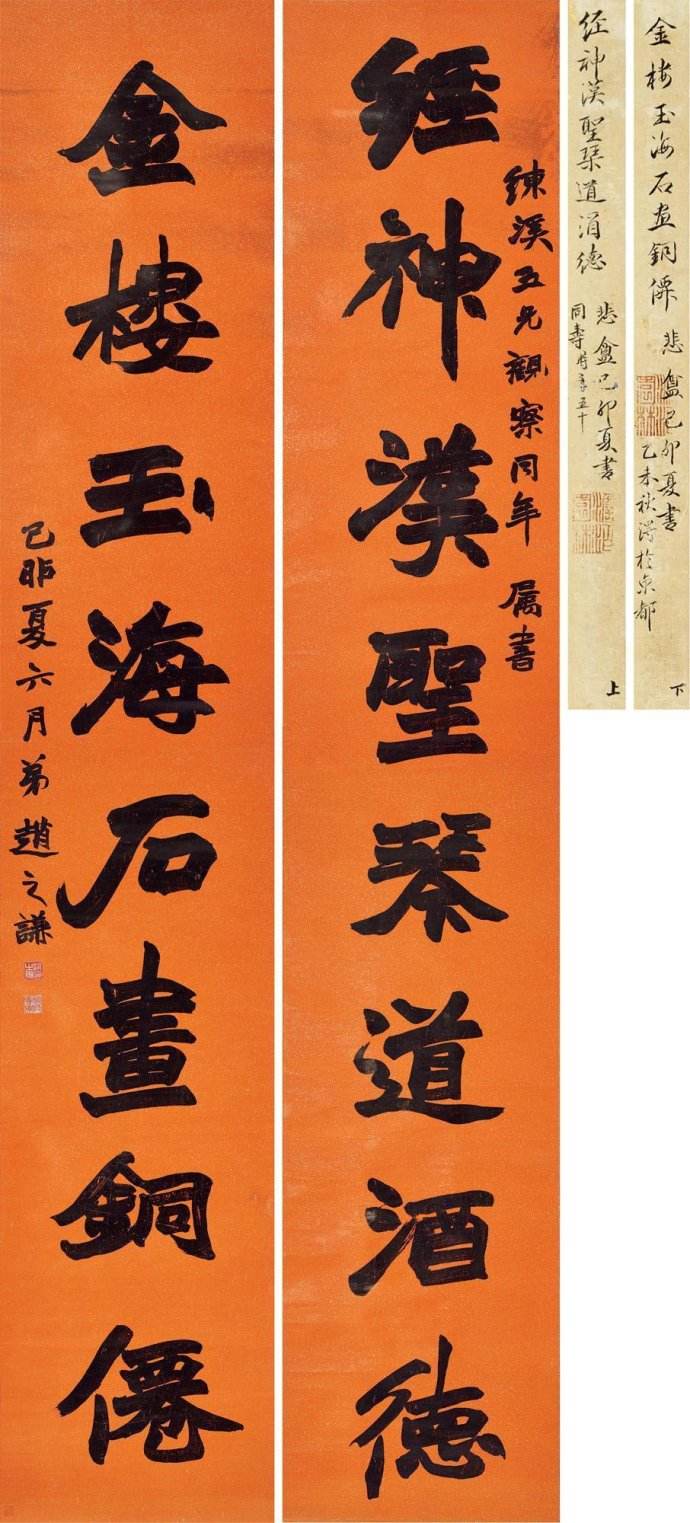 經神漢聖琴道酒德
練溪五兄觀察同年 屬書
金樓玉海石畫銅僊
己卯夏六月弟趙之謙
经神漢聖琹道酒德
悲盦己卯夏書
同壽時年五十
上
金楼玉海石畫銅僊 悲盦己卯夏書
乙未秋得於京都
下